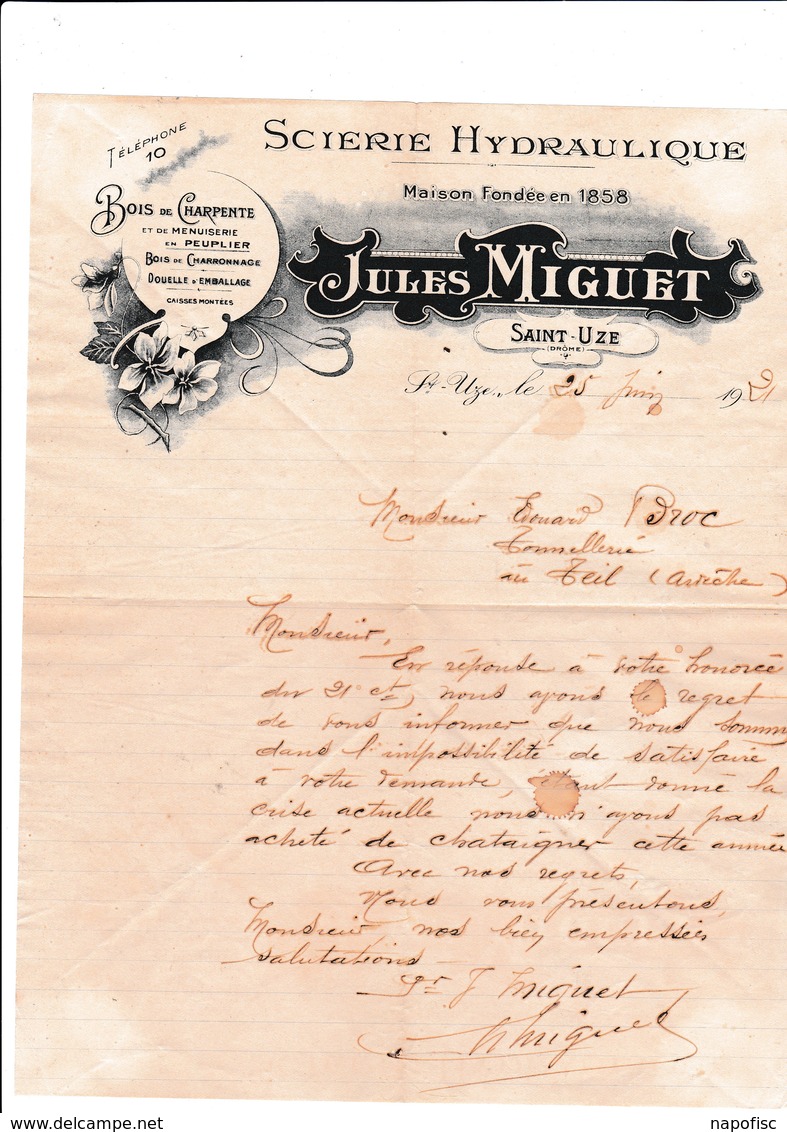 TÉLÉPHONE
10
SCIERIE HYDRAULIQUE
Maison Fondée en 1858
BOIS DE CHARPENTE
ET DE MENUISERIE
EN PEUPLIER
BOIS DE CHARRONNAGE
DOUELLE D'EMBALLAGE
CAISSES MONTÉES
JULES MIGUET
SAINT-UZE
(DRÔME)
St-Uze, le 25 juin 1921
Monsieur Edouard Broc
Tonnellerie
au Teil (Ardèche)
Monsieur,
En réponse à votre honorée
du 21 ct, nous ayons le regret
de vous informer que nous somm
dans l'impossibilité de satisfaire
à votre demande, étant donné la
crise actuelle nous n'ayons pas
acheté de chataigner cette année
Avec nos regrets,
Nous vous présentons,
Monsieur, nos bien empressées
salutations
Pr J Miguet
Miguet
delcampe.net
napofisc